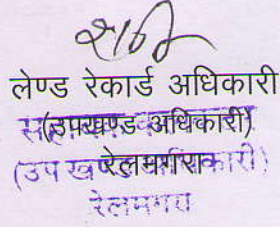 लेण्ड रेकार्ड अधिकारी
(उपखण्ड अधिकारी)
रेलमगरा
(उप खण्ड अधिकारी)
रेलमगरा